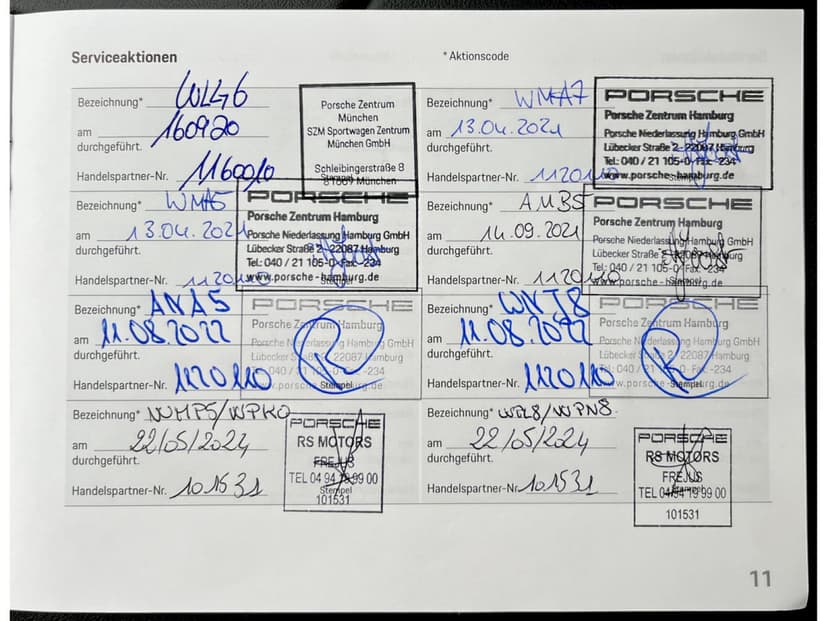 Serviceaktionen
* Aktionscode
Bezeichnung* WLG6
am 160920
durchgeführt.
Handelspartner-Nr.
Porsche Zentrum
München
SZM Sportwagen Zentrum
München GmbH
Schleibingerstraße 8
81669 München
Bezeichnung* WMA7
am 13.04.2021
durchgeführt.
Handelspartner-Nr. 1120110
PORSCHE
Porsche Zentrum Hamburg
Porsche Niederlassung Hamburg GmbH
Lübecker Straße 2 - 22087 Hamburg
Tel.: 040 / 21 105-0 Fax -234
www.porsche-hamburg.de
Bezeichnung* WMA5
am 13.04.2021
durchgeführt.
Handelspartner-Nr. 1120110
PORSCHE
Porsche Zentrum Hamburg
Porsche Niederlassung Hamburg GmbH
Lübecker Straße 2 - 22087 Hamburg
Tel.: 040 / 21 105-0 Fax -234
www.porsche-hamburg.de
Bezeichnung* AMB5
am 14.09.2021
durchgeführt.
Handelspartner-Nr. 1120110
PORSCHE
Porsche Zentrum Hamburg
Porsche Niederlassung Hamburg GmbH
Lübecker Straße 2 - 22087 Hamburg
Tel.: 040 / 21 105-0 Fax -234
www.porsche-hamburg.de
Bezeichnung* ANA5
am 11.08.2022
durchgeführt.
Handelspartner-Nr. 1120110
PORSCHE
Porsche Zentrum Hamburg
Porsche Niederlassung Hamburg GmbH
Lübecker Straße 2 - 22087 Hamburg
Tel.: 040 / 21 105-0 Fax -234
www.porsche-hamburg.de
Stempel
Bezeichnung* WNJ8
am 11.08.2022
durchgeführt.
Handelspartner-Nr. 1120110
PORSCHE
Porsche Zentrum Hamburg
Porsche Niederlassung Hamburg GmbH
Lübecker Straße 2 - 22087 Hamburg
Tel.: 040 / 21 105-0 Fax -234
www.porsche-hamburg.de
Stempel
Bezeichnung*
am 22/05/2024
durchgeführt.
Handelspartner-Nr. 101531
PORSCHE
RS MOTORS
FREJUS
TEL 04 94 19 99 00
Stempel
101531
Bezeichnung*
am 22/05/2024
durchgeführt.
Handelspartner-Nr. 101531
PORSCHE
RS MOTORS
FREJUS
TEL 04 94 19 99 00
Stempel
101531
11